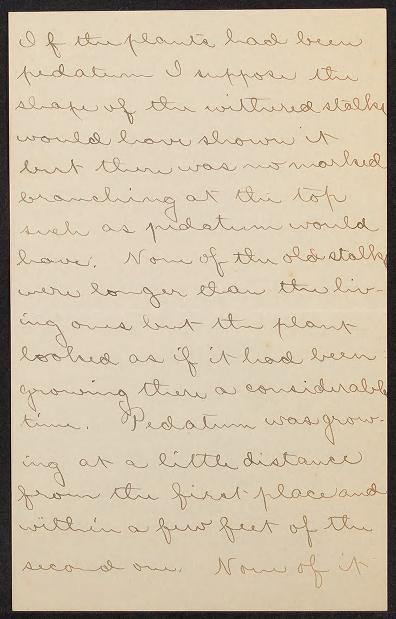 If the plants had been
pedatum I suppose the
shape of the withered stalks
would have shown it
but there was no marked
branching at the top
such as pedatum would
have. None of the old stalks
were longer than the liv-
ing ones but the plant
looked as if it had been
growing there a considerable
time. Pedatum was grow-
ing at a little distance
from the first place and
within a few feet of the
second one. None of it